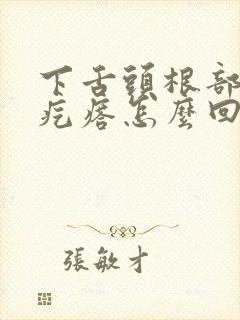 下舌頭根部
疙瘩怎麼回
張敏才